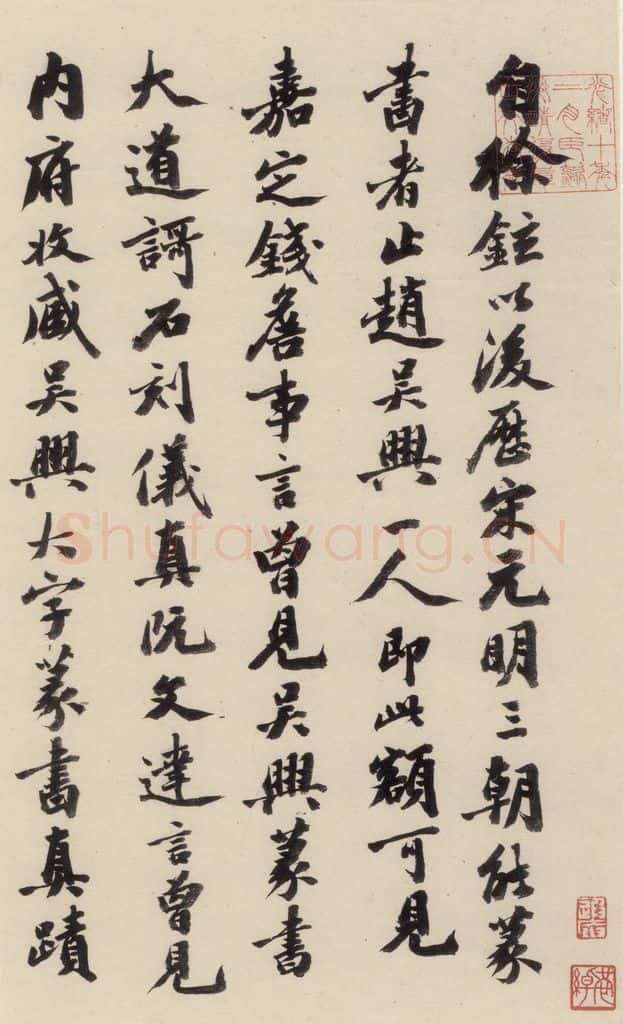 自徐鉉以後歷宋元明三朝能篆
書者止趙吳興一人即此額可見
嘉定錢詹事言曾見吳興篆書
大道謌石刻儀真阮文達言曾見
內府收藏吳興大字篆書真蹟
Shufawang.CN